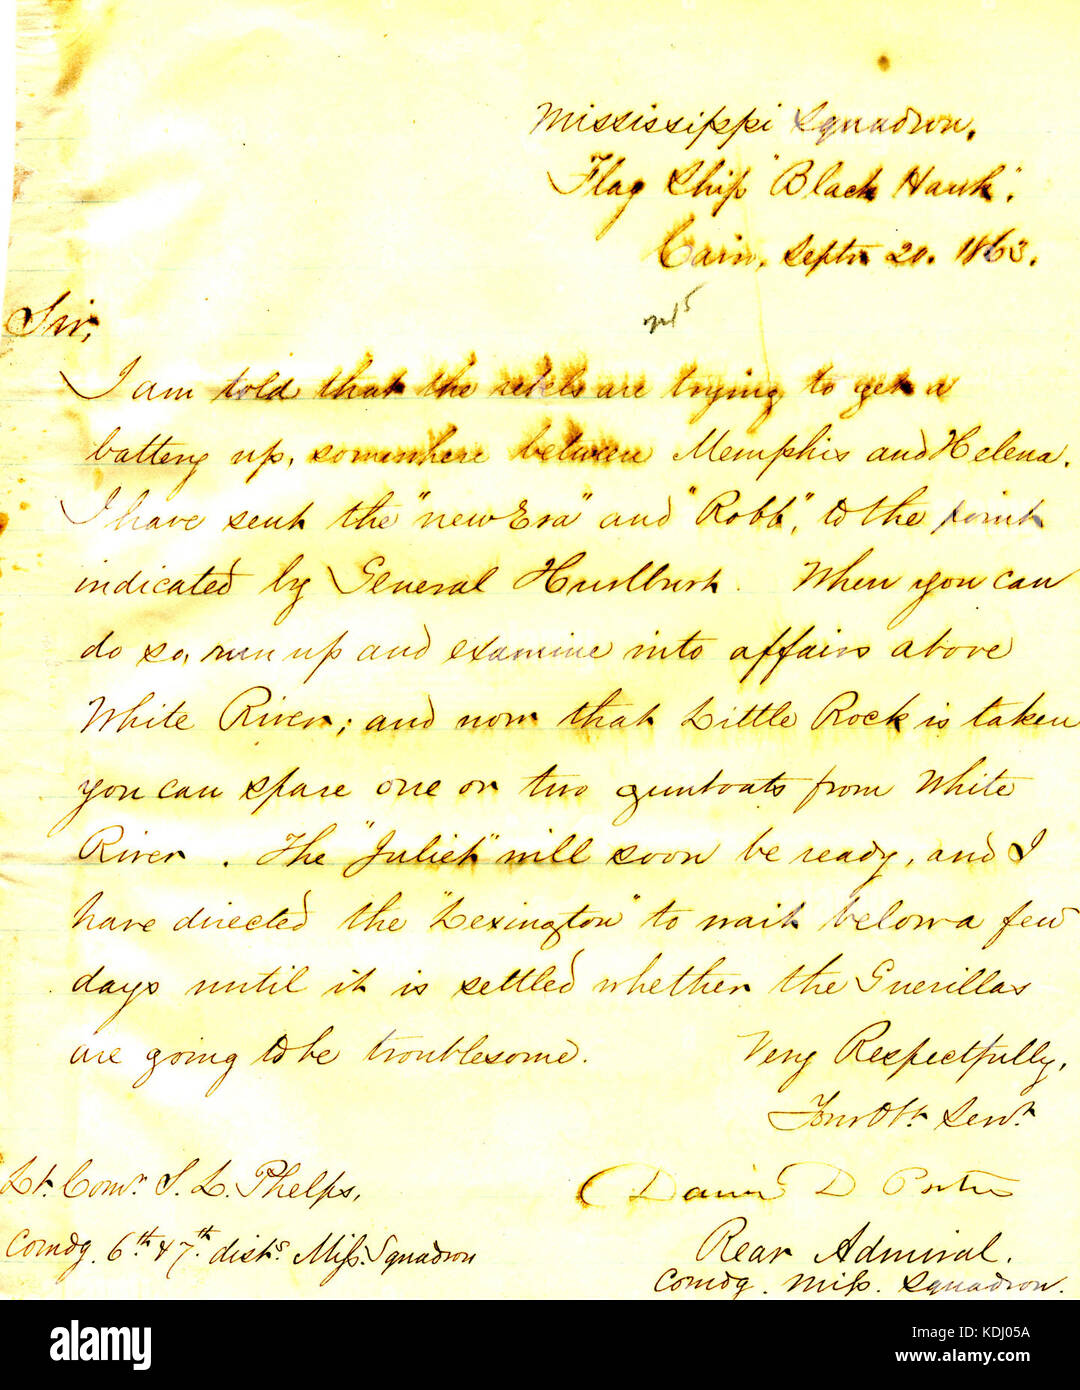 Mississippi Squadron,
Flag Ship "Black Hawk",
Cairo, Septr 20. 1863.
Sir,
I am told that the rebels are trying to get a
battery up, somewhere between Memphis and Helena.
I have sent the "New Era" and "Robb", to the point
indicated by General Hurlburt. When you can
do so, run up and examine into affairs above
White River; and now that Little Rock is taken
you can spare one or two gunboats from White
River. The "Juliet" will soon be ready, and I
have directed the "Lexington" to wait below a few
days until it is settled whether the Guerillas
are going to be troublesome.
Very Respectfully,
Your Obt. Servt
David D Porter
Rear Admiral.
Comdg. Miss. Squadron.
Lt. Comr. S. L. Phelps,
Comdg. 6th & 7th dists Miss. Squadron
alamy
Image ID: KDJ05A
www.alamy.com